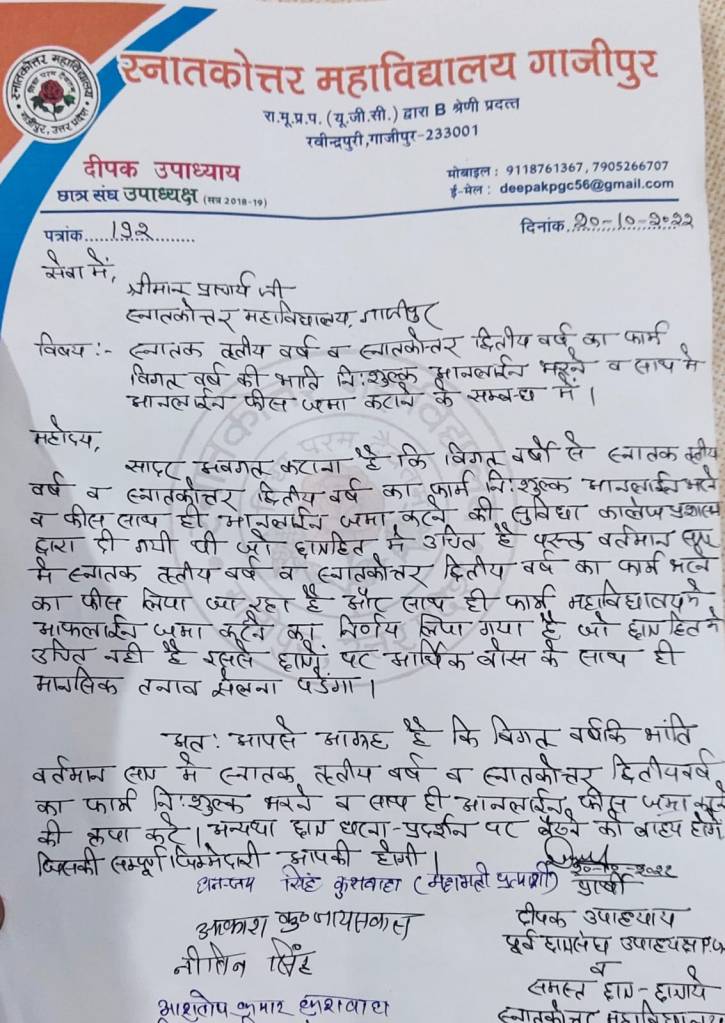 स्नातकोत्तर महाविद्यालय
गाजीपुर, उत्तर प्रदेश
स्नातकोत्तर महाविद्यालय गाजीपुर
रा.मू.प्र.प. (यू.जी.सी.) द्वारा B श्रेणी प्रदत्त
रवीन्द्रपुरी,गाजीपुर-233001
दीपक उपाध्याय
छात्र संघ उपाध्यक्ष (सत्र 2018-19)
मोबाइल : 9118761367, 7905266707
ई-मेल : deepakpgc56@gmail.com
पत्रांक.....192............
दिनांक..20-10-2022
सेवा में,
श्रीमान प्राचार्य जी
स्नातकोत्तर महाविद्यालय, गाजीपुर
विषय:- स्नातक तृतीय वर्ष व स्नातकोत्तर द्वितीय वर्ष का फार्म
विगत वर्ष की भाति नि:शुल्क आनलाईन भरने व साथ मे
आनलाईन फीस जमा कराने के सम्बन्ध में।
महोदय,
सादर अवगत कराना है कि विगत वर्षो से स्नातक तृतीय
वर्ष व स्नातकोत्तर द्वितीय वर्ष का फार्म नि:शुल्क आनलाईन भरने
व फीस साथ ही आनलाईन जमा करने की सुविधा कालेज प्रशासन
द्वारा दी गयी थी जो छात्रहित मे उचित है परन्तु वर्तमान सत्र
मे स्नातक तृतीय वर्ष व स्नातकोत्तर द्वितीय वर्ष का फार्म भरने
का फीस लिया जा रहा है और साथ ही फार्म महाविद्यालय मे
आफलाईन जमा करने का निर्णय लिया गया है जो छात्र हित मे
उचित नही है इससे छात्रों पर आर्थिक बोस के साथ ही
मानसिक तनाव झेलना पडेगा।
अत: आपसे आग्रह है कि विगत वर्षकि भांति
वर्तमान सत्र मे स्नातक तृतीय वर्ष व स्नातकोत्तर द्वितीय वर्ष
का फार्म नि:शुल्क भरने व साथ ही आनलाईन फीस जमा करने
की कृपा करे। अन्यथा छात्र धरना-प्रदर्शन पर बैठने को बाध्य होंगे
जिसकी सम्पूर्ण जिम्मेदारी आपकी होगी।
20-10-2022
धनन्जय सिंह कुशवाहा (महामंत्री प्रत्याशी) प्रार्थी
आकाश कु० जायसवाल
दीपक उपाध्याय
पूर्व छात्रसंघ उपाध्यक्ष
नीतिन सिंह
व
समस्त छात्र-छात्राये
आशुतोष कुमार कुशवाहा
स्नातकोत्तर महाविद्यालय